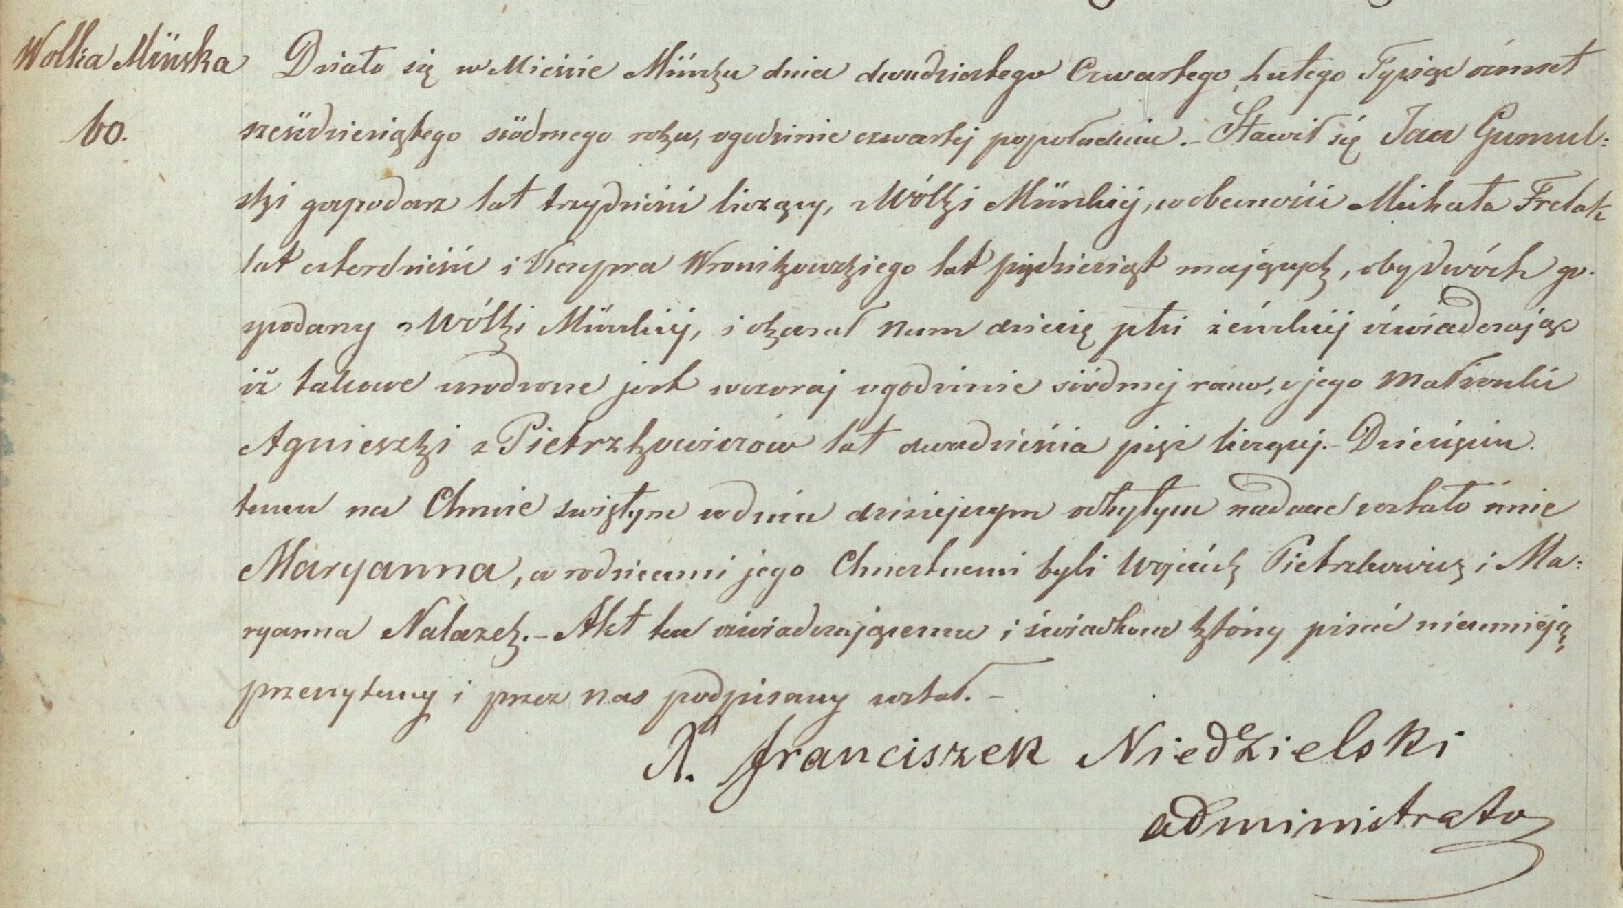 Wolka Mińska
60.
Działo się w Mieście Mińsku dnia dwudziestego Czwartego, Lutego Tysiąc óśmset
sześdziesiątego siódmego roku, ogodzinie czwartej popołudniu. – Stawił się Jan Gumul=
ski gospodarz lat trzydzieści liczący, z Wólki Mińskiej, w obecności Michała Frelak
lat czterdzieści i Kacpra Wronikowskiego lat piędziesiąt mających, obydwóch go=
spodarzy z Wólki Mińskiej, i okazał nam dziecię płci żeńskiej oświadczając
iż takowe urodzone jest wczoraj ogodzinie siódmej rano, z jego Małżonki
Agnieszki z Pietrzkowiczów lat dwadzieścia pięć liczącej. – Dziecięciu
temu na Chrzcie świętym w dniu dzisiejszym odbytym nadane zostało imie
Maryanna, a rodzicami jego Chrzestnemi byli Wojciech Pietrzkowicz i Ma=
ryanna Nalazek. – Akt ten oświadczającemu i świadkom którzy pisać nieumieją
przeczytany i przez nas podpisany został. –
X. Franciszek Niedzielski
administrator